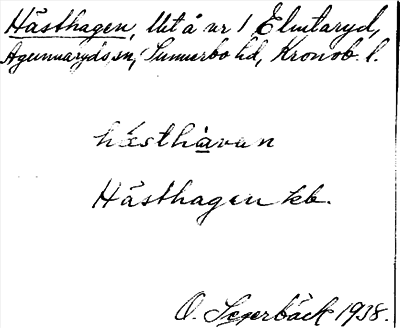 Hästhagen, lht å nr 1 Elmtaryd,
Agunnaryds sn, Sunnerbo hd, Kronob. l.
hästhavan
Hästhagen kb.
O. Segerbäck 1938.